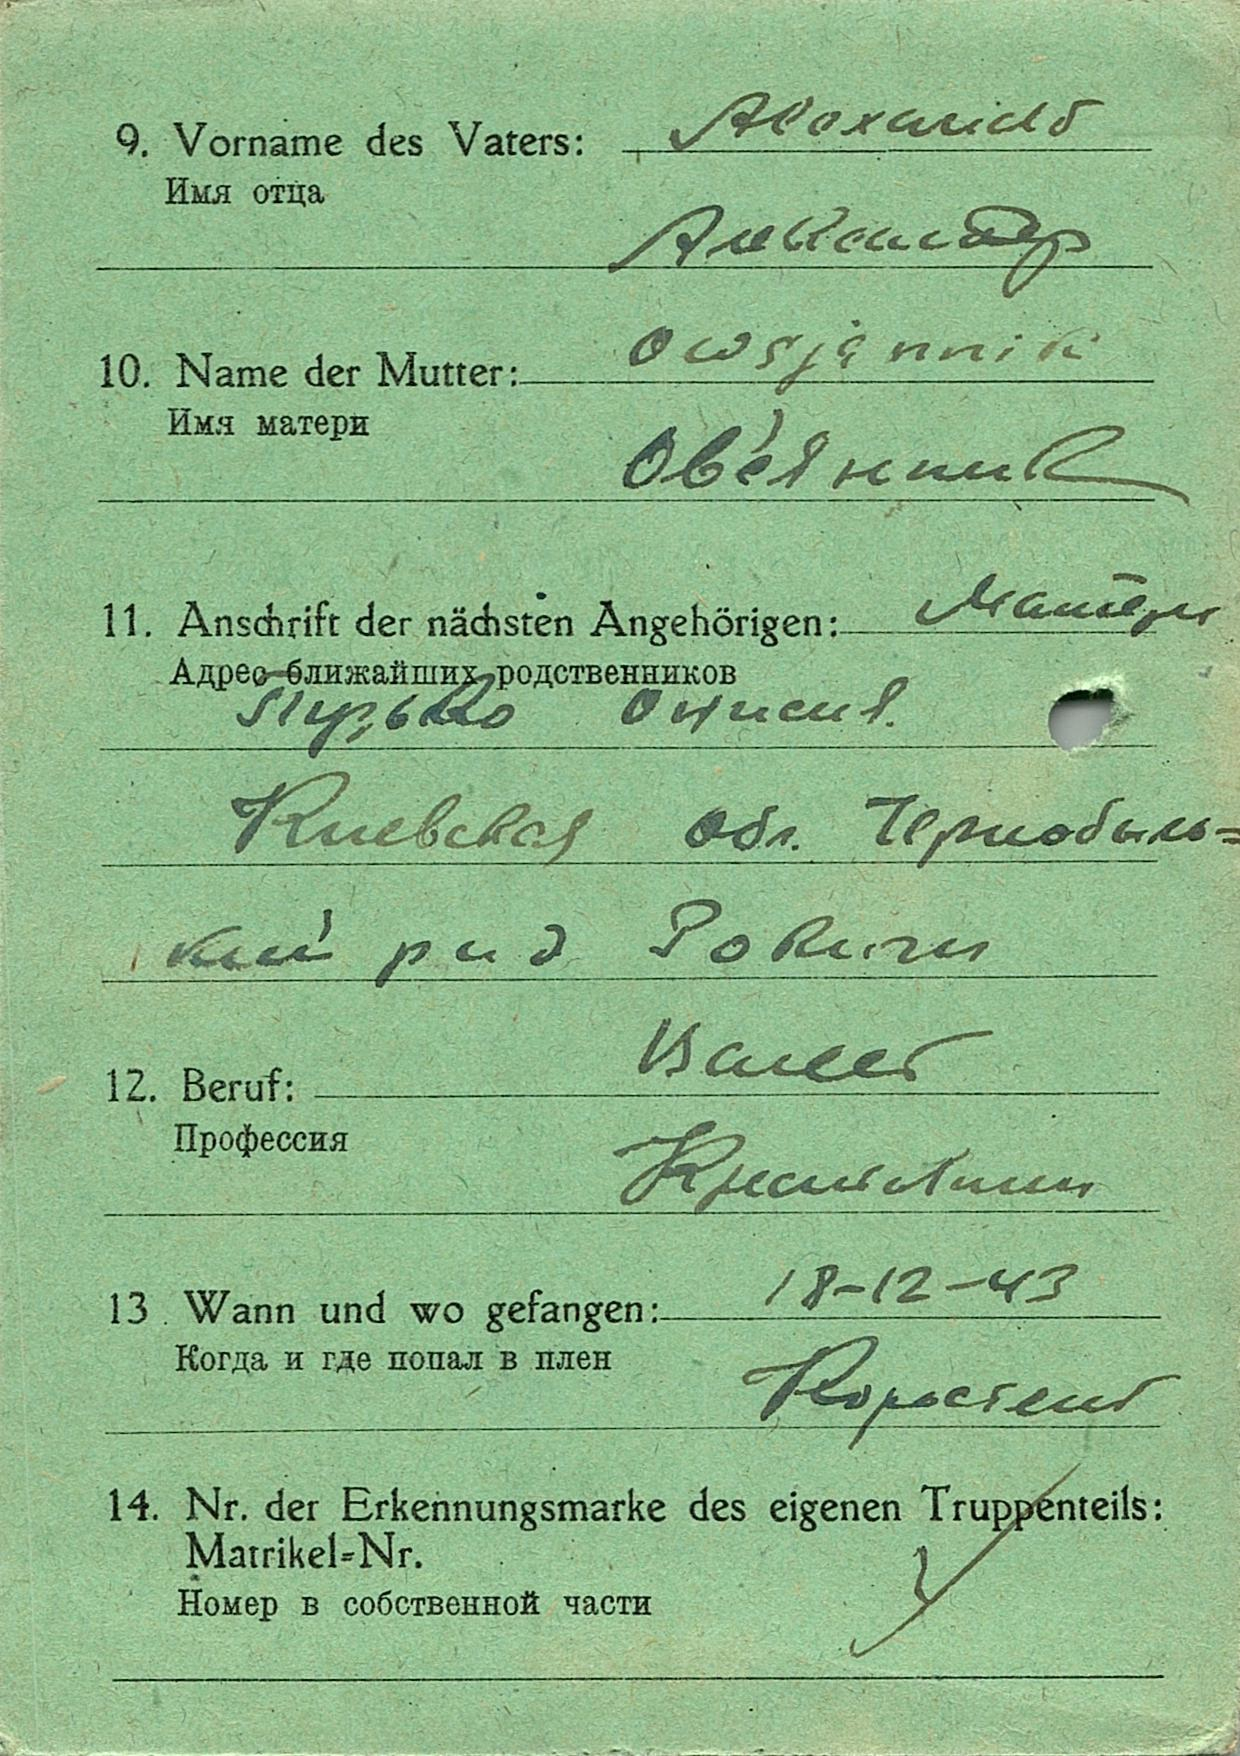 9. Vorname des Vaters: Alexandr
Имя отца
Александр
10. Name der Mutter: Owsjannik
Имя матери
Овсянник
11. Anschrift der nächsten Angehörigen: Матери
Адрес ближайших родственников
Пузько Онисия.
Киевская обл. Чернобыль=
кий рид Рокичи
12. Beruf: Bauer
Профессия
Крестьянин
13. Wann und wo gefangen: 18-12-43
Когда и где попал в плен
Коростень
14. Nr. der Erkennungsmarke des eigenen Truppenteils:
Matrikel=Nr.
Номер в собственной части